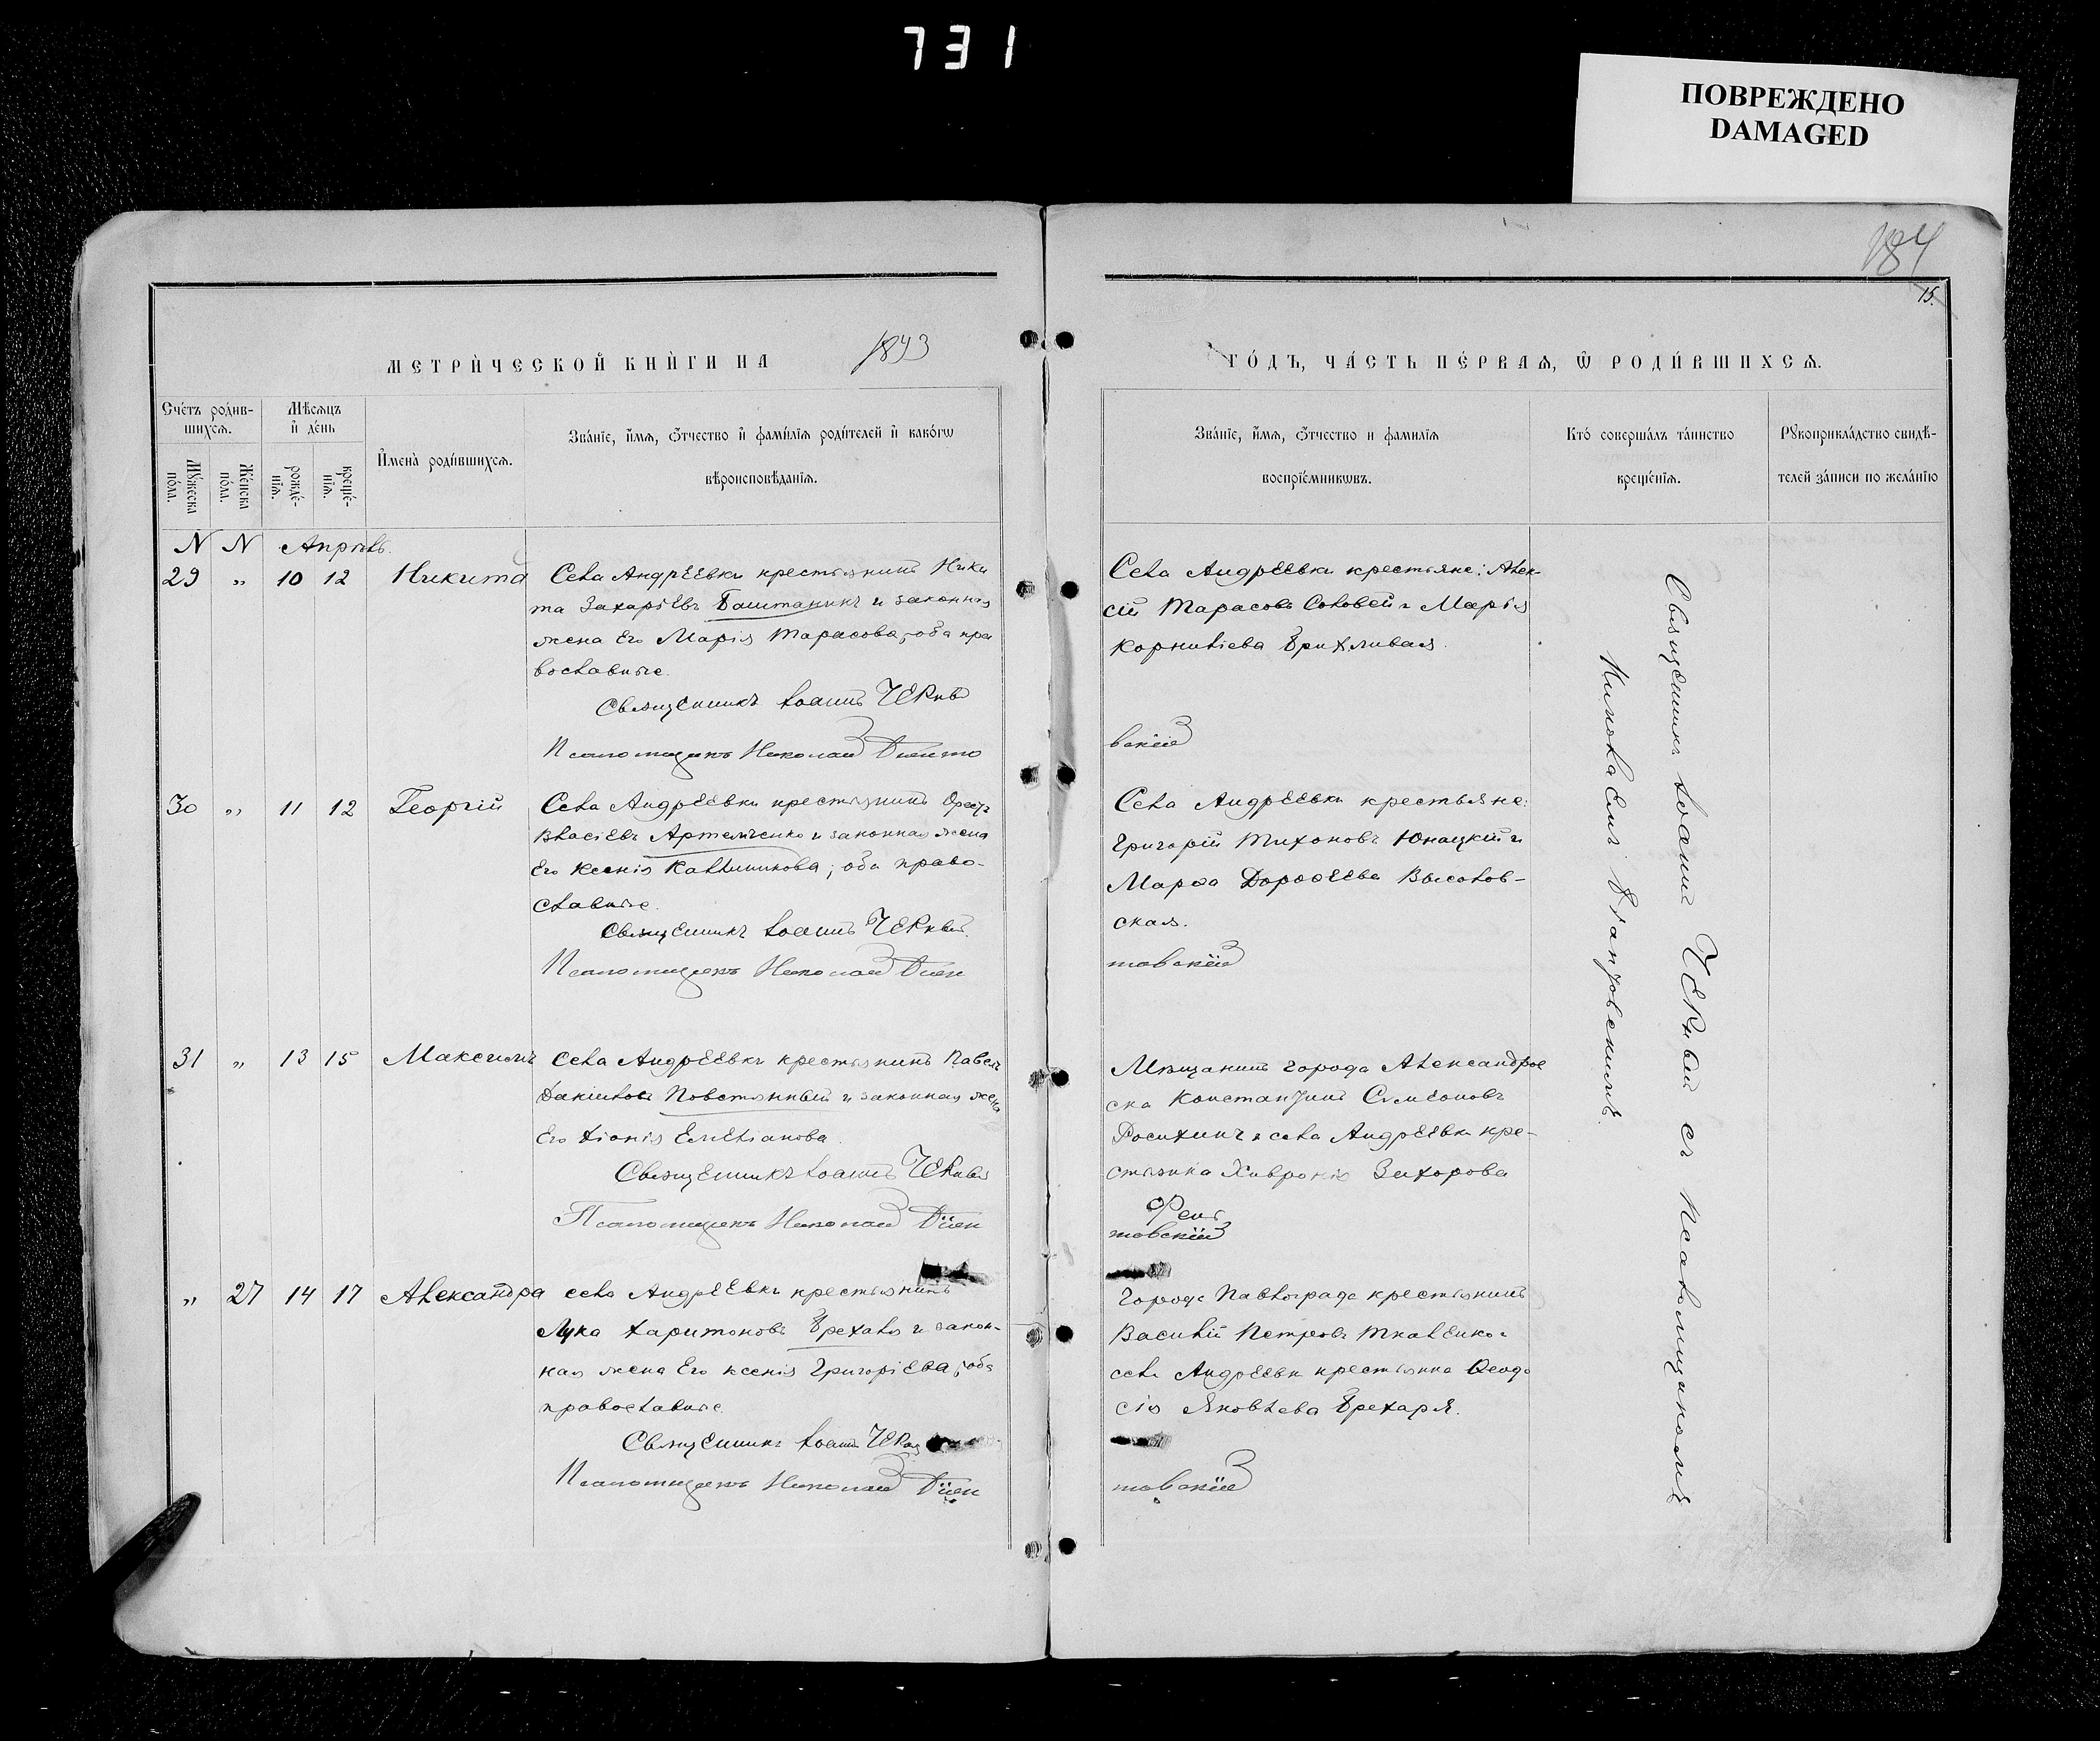 731
ПОВРЕЖДЕНО
DAMAGED
184
15.
МЕТРИ́ЧЕСКОЙ КНИ́ГИ НА 1893
ГО́ДЪ, ЧА́СТЬ ПЕ́РВАѦ, Ѡ РОДИ́ВШИХСѦ.
Сче́тъ роди́в-
шихсѧ.
Мѣ́сѧцъ
и҆ де́нь
Мꙋ́жеска
по́ла.
Же́нска
по́ла.
рожде́-
нїѧ.
креще́-
нїѧ.
И҆мена̀ роди́вшихсѧ.
Зва́нїе, и҆́мѧ, ѻ҆́тчество и҆ фами́лїѧ роди́телей и҆ како́гѡ
вѣроисповѣ́данїѧ.
Зва́нїе, и҆́мѧ, ѻ҆́тчество и фами́лїѧ
воспрїе́мникѡвъ.
Кто̀ соверша́лъ та́инство
креще́нїѧ.
Рꙋкоприкла́дство свидѣ́-
телей за́писи по жела́нїю
N N Апрѣль.
29 „ 10 12 Никита Села Андреевки крестьянинъ Ники
та Захаріевъ Баштаникъ и законная
жена его Марія Тарасова, оба пра
вославные.
Священникъ Іоаннъ Чернъ
Псаломщикъ Николай
Села Андреевки крестьяне: Алек-
сій Тарасовъ Соловей и Марія
Корниліева Брихливая.
вскій
30 „ 11 12 Георгій Села Андреевки крестьянинъ Орестъ
Власіевъ Артемченко и законная жена
его Ксенія Каллиникова; оба право-
славные.
Священникъ Іоаннъ Черный.
Псаломщикъ Николай
Села Андреевки крестьяне:
Григорій Тихоновъ Юнацкій и
Марѳа Дороѳеева Высолов-
ская.
товскій
31 „ 13 15 Максимъ Села Андреевки крестьянинъ Павелъ
Даніиловъ Повстянный и законная жена
его Хіонія Емеліанова.
Священникъ Іоаннъ Черный
Псаломщикъ Николай
Мѣщанинъ города Александров
ска Константинъ Симеоновъ
Росихинъ и села Андреевки кре-
стьянка Хивронія Захарова
товскій
„ 27 14 17 Александра села Андреевки крестьянинъ
Лука Харитоновъ Брехаля и закон-
ная жена его Ксенія Григоріева, оба
православные.
Священникъ Іоаннъ
Псаломщикъ Николай
Города Павлограда крестьянинъ
Василій Петровъ Ткаленко и
села Андреевки крестьянка Ѳеодо
сія Яковлева Брехаря.
товскій
Священникъ Іоаннъ Черный съ Псаломщикомъ
Николаемъ